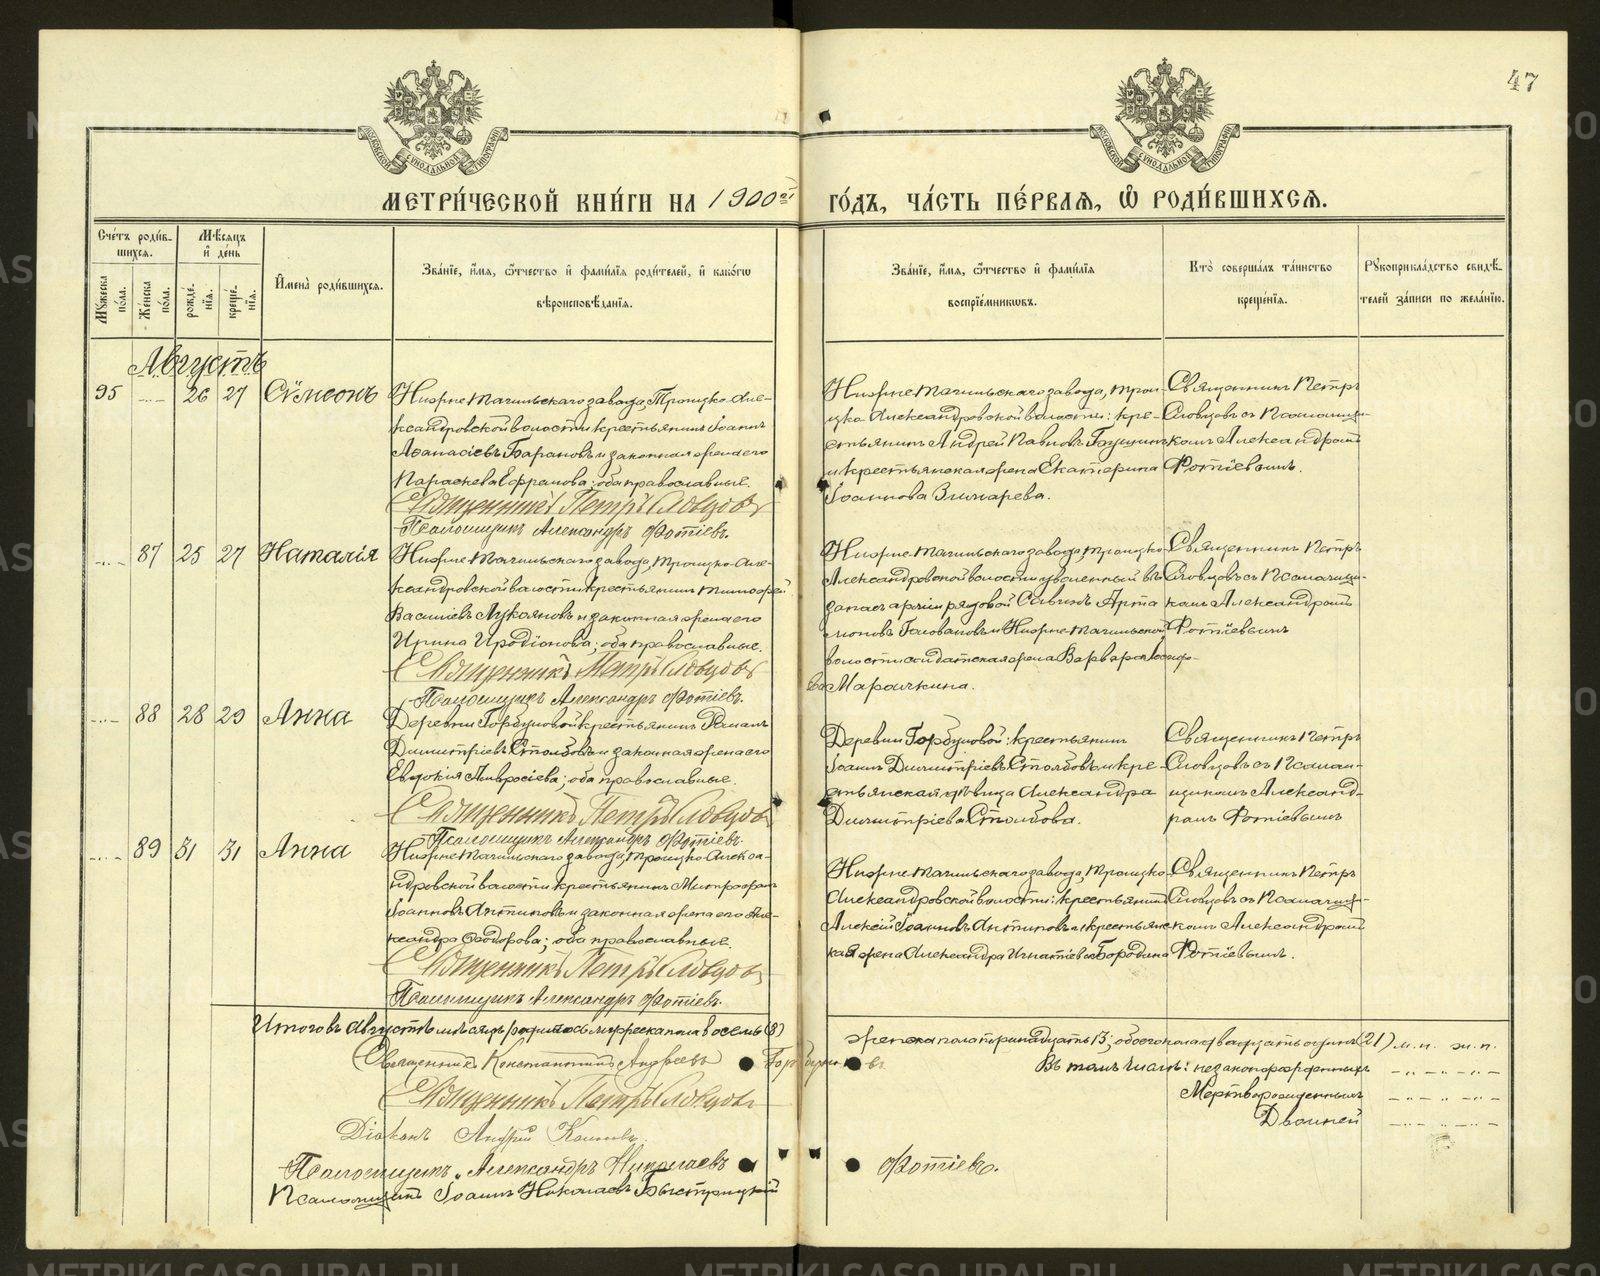 47
МОСКОВСКОЙ СУНОДАЛЬНОЙ ТИПОГРАФИИ
МОСКОВСКОЙ СУНОДАЛЬНОЙ ТИПОГРАФИИ
МЕТРИ́ЧЕСКОЙ КНИ́ГИ НА 1900й ГО́ДЪ, ЧА́СТЬ ПЕ́РВАЯ, Ѡ҆ РОДИ́ВШИХСЯ.
Сче́тъ роди́в-
шихся.
Мѣ́сяцъ
и҆ де́нь
Мꙋ́жеска по́ла.
Же́нска по́ла.
рожде́-нїя.
креще́-нїя.
И҆мена̀ роди́вшихся.
Зва́нїе, и҆́мя, ѻ҆́тчество и҆ фами́лїя роди́телей, и҆ како́гѡ
вѣроисповѣ́данїя.
Зва́нїе, и҆́мя, ѻ҆́тчество и҆ фами́лїя
воспрїе́мникѡвъ.
Кто̀ соверша́лъ та́инство
креще́нїя.
Рꙋкоприкла́дство свидѣ́-
телей за́писи по жела́нїю.
Августъ
95 26 27 Сѷмеонъ
Нижне Тагильскаго завода, Троицко-Але-
ксандровской волости крестьянинъ Іоаннъ
Аѳанасіевъ Барановъ и законная жена его
Параскева Ефрамова; оба православные.
Священникъ Петръ Словцовъ
Псаломщикъ Александръ Фотіев.
Нижне Тагильскаго завода, Трои-
цко Александровской волости: кре-
стьянинъ Андрей Павловъ Гаушинъ
и крестьянская жена Екатерина
Іоаннова
Священникъ Петръ
Словцовъ съ Псаломщи-
комъ Александромъ
Фотіевымъ.
87 25 27 Наталія
Нижне Тагильскаго завода, Троицко-Але-
ксандровской волости крестьянинъ Тимофей
Василіевъ Лукояновъ и законная жена его
Ирина Иродіонова; оба православные.
Священникъ Петръ Словцовъ
Псаломщикъ Александръ Фотіев.
Нижне Тагильскаго завода, Троицко-
Александровской волости уволенный въ
запасъ арміи рядовой Савинъ Арта
моновъ Головановъ и Нижне Тагильской
волости солдатская жена Варвара
Марачкина.
Священникъ Петръ
Словцовъ съ Псаломщи-
комъ Александромъ
Фотіевымъ
88 28 29 Анна
Деревни Горбуновой крестьянинъ Романъ
Димитріевъ Столбовъ и законная жена его
Евдокія Амвросіева; оба православные.
Священникъ Петръ Словцовъ
Псаломщикъ Александръ Фотіев.
Деревни Горбуновой: крестьянинъ
Іоаннъ Димитріевъ Столбовъ и кре-
стьянская дѣвица Александра
Димитріева Столбова.
Священникъ Петръ
Словцовъ съ Псалом-
щикомъ Александ-
ромъ Фотіевымъ
89 31 31 Анна
Нижне Тагильскаго завода, Троицко-Алекса-
ндровской волости крестьянинъ Митрофанъ
Іоанновъ Антиповъ и законная жена его Але-
ксандра Ѳеодорова; оба православные.
Священникъ Петръ Словцовъ
Псаломщикъ Александръ Фотіев.
Нижне Тагильскаго завода, Троицко-
Александровской волости: крестьянинъ
Алексій Іоанновъ Антиповъ и крестьянс-
кая жена Александра Игнатіева Бородина
Священникъ Петръ
Словцовъ съ Псаломщи-
комъ Александромъ
Фотіевымъ.
Итого въ Августѣ мѣсяцѣ родилось мужеска пола восемь (8) женска пола тринадцать 13; обоего пола двадцать одинъ (21) м.п. ж.п.
Священникъ Константинъ Андреевъ Горбуновъ
Въ томъ числѣ: незаконорожденныхъ
Священникъ Петръ Словцовъ
Мертворожденныхъ
Двойней
Діаконъ Андрей
Псаломщикъ Александръ Николаевъ Фотіевъ.
Псаломщикъ Іоаннъ Николаевъ Быстрицкій